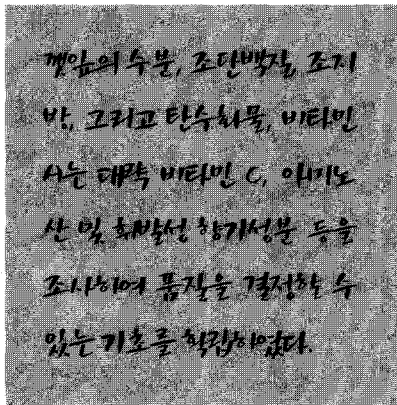 깻잎의 수분, 조단백질, 조지
방, 그리고 탄수화물, 비타민
A는 대략 비타민 C, 아미노
산 및 휘발성 향기성분 등을
조사하여 품질을 결정할 수
있는 기초를 확립하였다.